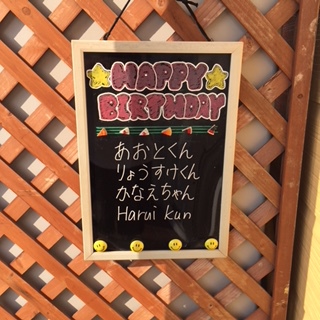 HAPPY
BIRTHDAY
あおとくん
りょうすけくん
かなえちゃん
Harui kun